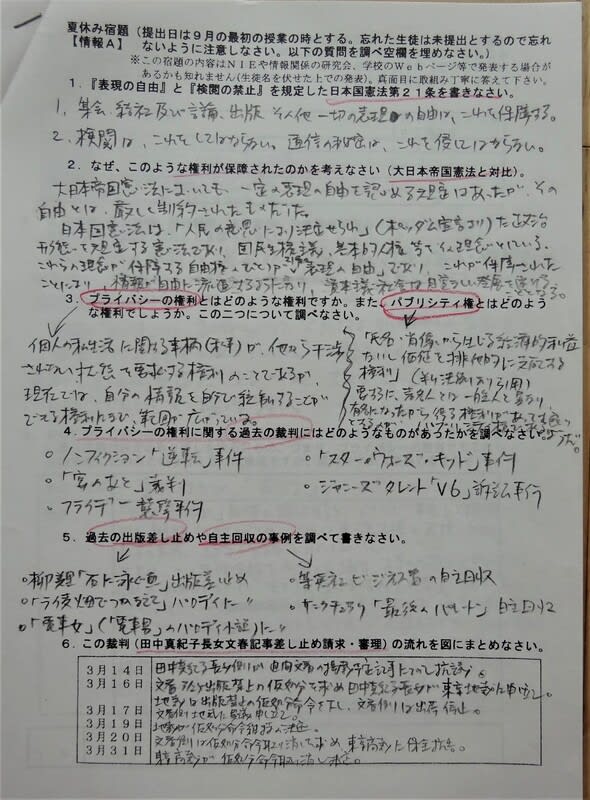 夏休み宿題（提出日は９月の最初の授業の時とする。忘れた生徒は未提出とするので忘れ
【情報Ａ】　ないように注意しなさい。以下の質問を調べ空欄を埋めなさい。）
※この宿題の内容はＮＩＥや情報関係の研究会、学校のＷｅｂページ等で発表する場合が
あるかも知れません(生徒名を伏せた上での発表)。真面目に取組み丁寧に答えて下さい。
１．『表現の自由』と『検閲の禁止』を規定した日本国憲法第２１条を書きなさい。
1. 集会、結社及び言論、出版その他一切の表現の自由は、これを保障する。
2. 検閲は、これをしてはならない。通信の秘密は、これを侵してはならない。
２．なぜ、このような権利が保障されたのかを考えなさい（大日本帝国憲法と対比）。
大日本帝国憲法においても、一定の表現の自由を認める規定はあったが、その
自由とは、厳しく制約されたものだった。
日本国憲法は、「人民の意思により決定せられ」(ポツダム宣言より)た政治
形態を規定する憲法であり、国民主権主義、基本的人権等を理念としている。
これらの理念が保障する自由権のひとつが「表現の自由」であり、これが保障された
ことにより、情報が自由に流通するようになり、資本主義社会は目覚しい発展を遂げる。
３．プライバシーの権利とはどのような権利ですか。また、パブリシティ権とはどのよう
な権利でしょうか。この二つについて調べなさい。
個人の私生活に関する事柄(秘密)が、他から干渉
されない状態を要求する権利のことであるが、
現在では、自分の情報を自分で
できる権利にまで、範囲が広がっている。
「氏名・肖像から生じる経済的利益
ないし価値を排他的に支配する
権利」
要するに、芸能人とは一般人と異なり
４．プライバシーの権利に関する過去の裁判にはどのようなものがあったかを調べなさい。
○ノンフィクション「逆転」事件
○「宴のあと」裁判
○フライデー襲撃事件
○「スターウォーズ・キッド」事件
○ジャニーズタレント「V6」訴訟事件
５．過去の出版差し止めや自主回収の事例を調べて書きなさい。
○柳美里「石に泳ぐ魚」出版差止め
○「ライ麦畑でつかまえて」パロディに〃
○「電車女」(「電車男」のパロディ小説)に〃
○集英社ビジネス書の自主回収
○サンクチュアリ「最後のパレード」自主回収
６．この裁判（田中真紀子長女文春記事差し止め請求・審理）の流れを図にまとめなさい。
３月１４日　田中真紀子長女側が週刊文春の掲載予定記事について抗議。
３月１６日　文春側に出版禁止の仮処分を求め田中真紀子長女が東京地裁に申立て。
地裁は出版禁止の仮処分命令を下し、文春側は出荷停止。
３月１７日　文春側地裁に異議申し立て。
３月１９日　地裁が仮処分命令を決定。
３月２０日　文春側は仮処分命令取り消しを求め、東京高裁に保全抗告。
３月３１日　東京高裁が仮処分命令取り消し決定。